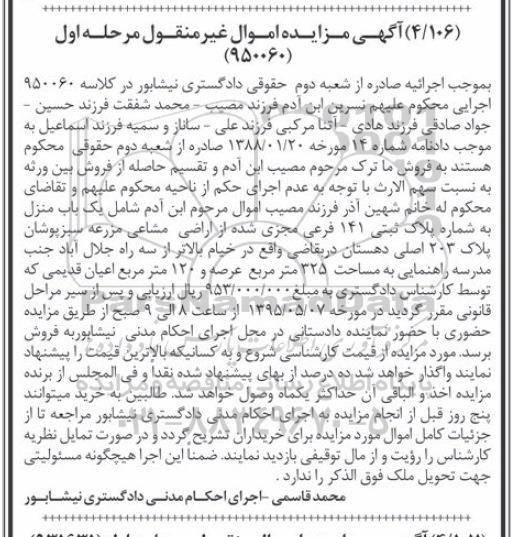 (۴/۱۰۶) آگهی مزایده اموال غیرمنقول مرحله اول
(۹۵۰۰۶۰)
بموجب اجرائیه صادره از شعبه دوم حقوقی دادگستری نیشابور در کلاسه ۹۵۰۰۶۰
اجرایی محکوم علیهم نسرین ابن آدم فرزند مصیب - محمد شفقت فرزند حسین -
جواد صادقی فرزند هادی - آتنا مرکبی فرزند علی - ساناز و سمیه فرزند اسماعیل به
موجب دادنامه شماره ۱۴ مورخه ۱۳۸۸/۰۱/۲۰ صادره از شعبه دوم حقوقی محکوم
هستند به فروش ما ترک مرحوم مصیب ابن آدم و تقسیم حاصله از فروش بین ورثه
به نسبت سهم الارث با توجه به عدم اجرای حکم از ناحیه محکوم علیهم و تقاضای
محکوم له خانم شهین آذر فرزند مصیب اموال مرحوم ابن آدم شامل یک باب منزل
به شماره پلاک ثبتی ۱۴۱ فرعی مجزی شده از اراضی مشاعی مزرعه سبزپوشان
پلاک ۲۰۳ اصلی دهستان دربقاضی واقع در خیام بالاتر از سه راه جلال آباد جنب
مدرسه راهنمایی به مساحت ۳۲۵ متر مربع عرصه و ۱۲۰ متر مربع اعیان قدیمی که
توسط کارشناس دادگستری به مبلغ ۹۵۳/۰۰۰/۰۰۰ ریال ارزیابی و پس از سیر مراحل
قانونی مقرر گردید در مورخه ۱۳۹۵/۰۵/۰۷ از ساعت ۸ الی ۹ صبح از طریق مزایده
حضوری با حضور نماینده دادستانی در محل اجرای احکام مدنی نیشابور به فروش
برسد. مورد مزایده از قیمت کارشناسی شروع و به کسانیکه بالاترین قیمت را پیشنهاد
نمایند واگذار خواهد شد ده درصد از بهای پیشنهاد شده نقدا و فی المجلس از برنده
مزایده اخذ و الباقی آن حداکثر یکماه وصول خواهد شد. طالبین به خرید میتوانند
پنج روز قبل از انجام مزایده به اجرای احکام مدنی دادگستری نیشابور مراجعه تا از
جزئیات کامل اموال مورد مزایده برای خریداران تشریح گردد و در صورت تمایل نظریه
کارشناس را رؤیت و از مال توقیفی بازدید نمایند. ضمناً این اجرا هیچگونه مسئولیتی
جهت تحویل ملک فوق الذکر را ندارد .
محمد قاسمی - اجرای احکام مدنی دادگستری نیشابور